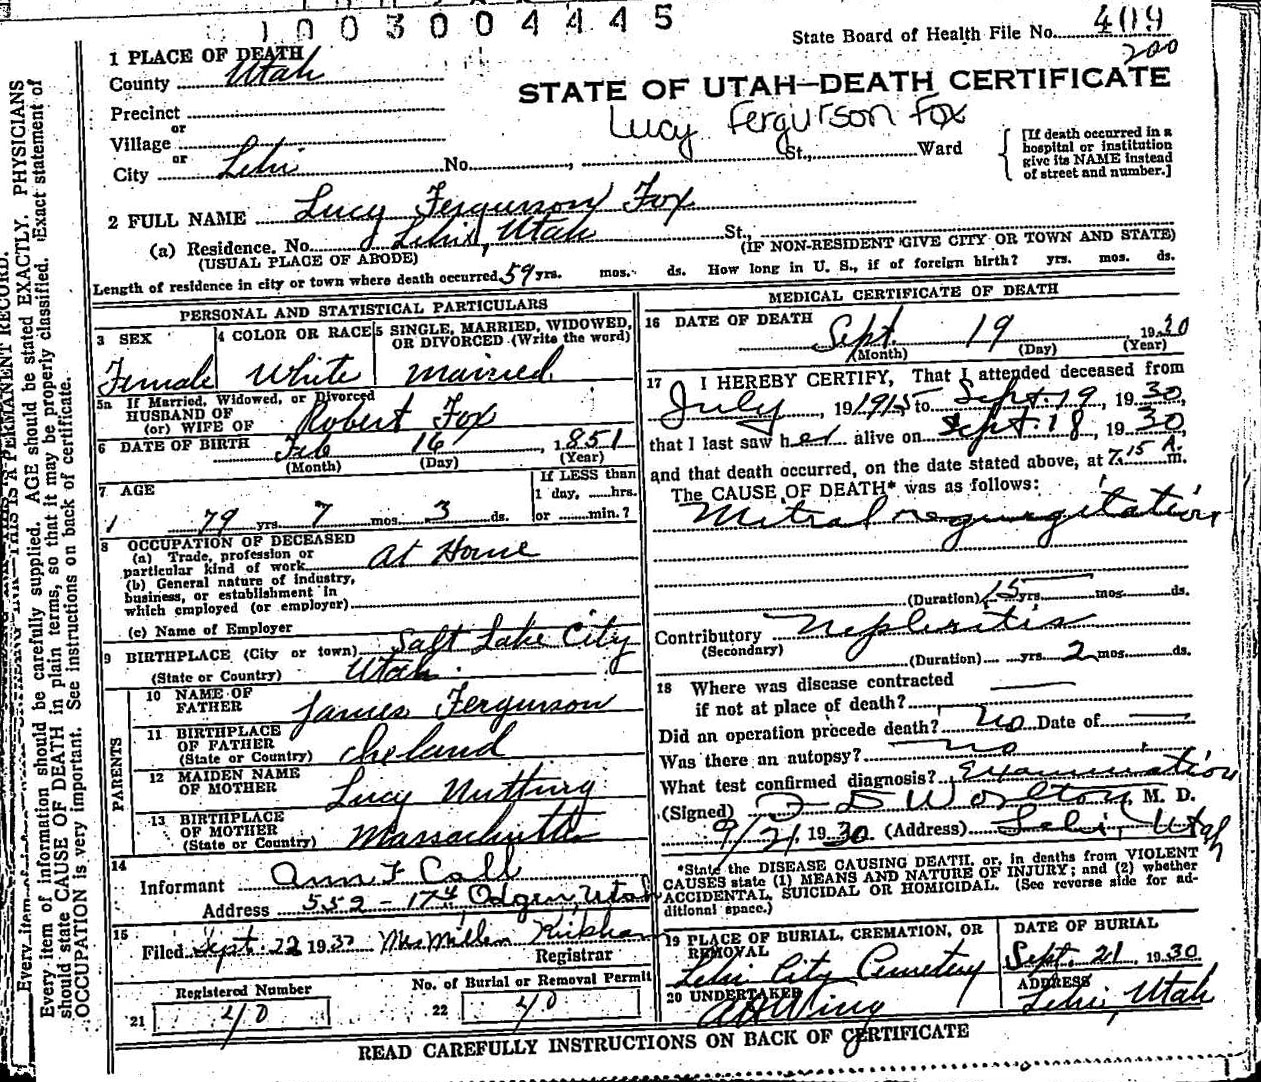 1003004445
State Board of Health File No. 409
200
1 PLACE OF DEATH
County Utah
STATE OF UTAH—DEATH CERTIFICATE
Precinct
Lucy Fergurson Fox
or
Village
or
City Lehi No. , St., Ward
[If death occurred in a
hospital or institution
give its NAME instead
of street and number.]
2 FULL NAME Lucy Fergurson Fox
(a) Residence. No. Lehi, Utah St.,
(USUAL PLACE OF ABODE) (IF NON-RESIDENT GIVE CITY OR TOWN AND STATE)
Length of residence in city or town where death occurred 59 yrs. mos. ds. How long in U. S., if of foreign birth? yrs. mos. ds.
PERSONAL AND STATISTICAL PARTICULARS
3 SEX
Female
4 COLOR OR RACE
White
5 SINGLE, MARRIED, WIDOWED,
OR DIVORCED (Write the word)
Married
5a If Married, Widowed, or Divorced
HUSBAND OF
(or) WIFE OF Robert Fox
6 DATE OF BIRTH Feb 16, 1851
(Month) (Day) (Year)
7 AGE
79 yrs. 7 mos. 3 ds.
If LESS than
1 day, ......hrs.
or ......min.?
8 OCCUPATION OF DECEASED
(a) Trade, profession or
particular kind of work At Home
(b) General nature of industry,
business, or establishment in
which employed (or employer)
(c) Name of Employer
9 BIRTHPLACE (City or town) Salt Lake City
(State or Country) Utah
PARENTS
10 NAME OF
FATHER James Fergurson
11 BIRTHPLACE
OF FATHER
(State or Country) Ireland
12 MAIDEN NAME
OF MOTHER Lucy Nutting
13 BIRTHPLACE
OF MOTHER
(State or Country) Massachusetts
14
Informant Ann F Call
Address 552 - 17th Odgen, Utah
15
Filed Sept. 22 1930 Mrs
Registrar
Registered Number
21 40
No. of Burial or Removal Permit
22 40
MEDICAL CERTIFICATE OF DEATH
16 DATE OF DEATH
Sept. 19 1930
(Month) (Day) (Year)
17 I HEREBY CERTIFY, That I attended deceased from
July, 191915 to Sept. 19, 1930,
that I last saw her alive on Sept. 18, 1930,
and that death occurred, on the date stated above, at 7.15 A. m.
The CAUSE OF DEATH* was as follows:
Mitral regurgitation
(Duration) 15 yrs. mos. ds.
Contributory Nephritis
(Secondary)
(Duration) yrs. 2 mos. ds.
18 Where was disease contracted
if not at place of death?
Did an operation precede death? No Date of
Was there an autopsy? No
What test confirmed diagnosis? Examination
(Signed) , M. D.
9/21 1930 (Address) Lehi, Utah
*State the DISEASE CAUSING DEATH, or, in deaths from VIOLENT
CAUSES state (1) MEANS AND NATURE OF INJURY; and (2) whether
ACCIDENTAL, SUICIDAL OR HOMICIDAL. (See reverse side for ad-
ditional space.)
19 PLACE OF BURIAL, CREMATION, OR
REMOVAL
Lehi City Cemetery
DATE OF BURIAL
Sept. 21, 1930
20 UNDERTAKER
A H Wing
ADDRESS
Lehi, Utah
READ CAREFULLY INSTRUCTIONS ON BACK OF CERTIFICATE
THIS IS A PERMANENT RECORD.
Every item of information should be carefully supplied. AGE should be stated EXACTLY. PHYSICIANS
should state CAUSE OF DEATH in plain terms, so that it may be properly classified. Exact statement of
OCCUPATION is very important. See instructions on back of certificate.